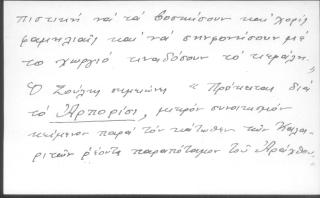 πιστική νά τά βοσκήσουν καί χωρίς
φαμηλιακής καί νά σηκώσουν μέ
τό χωργιό κιναδόσουν τό κεφάλι.
Ὁ Ζούκης σημειώνει "Πρόκειται διά
τό Ἀρπορίσι, μικρόν συνοικισμόν
κείμενον παρά τόν κάτωθεν τῶν Καλα-
ριτῶν ῥέοντα παραπόταμον τοῦ Ἀράχθου"